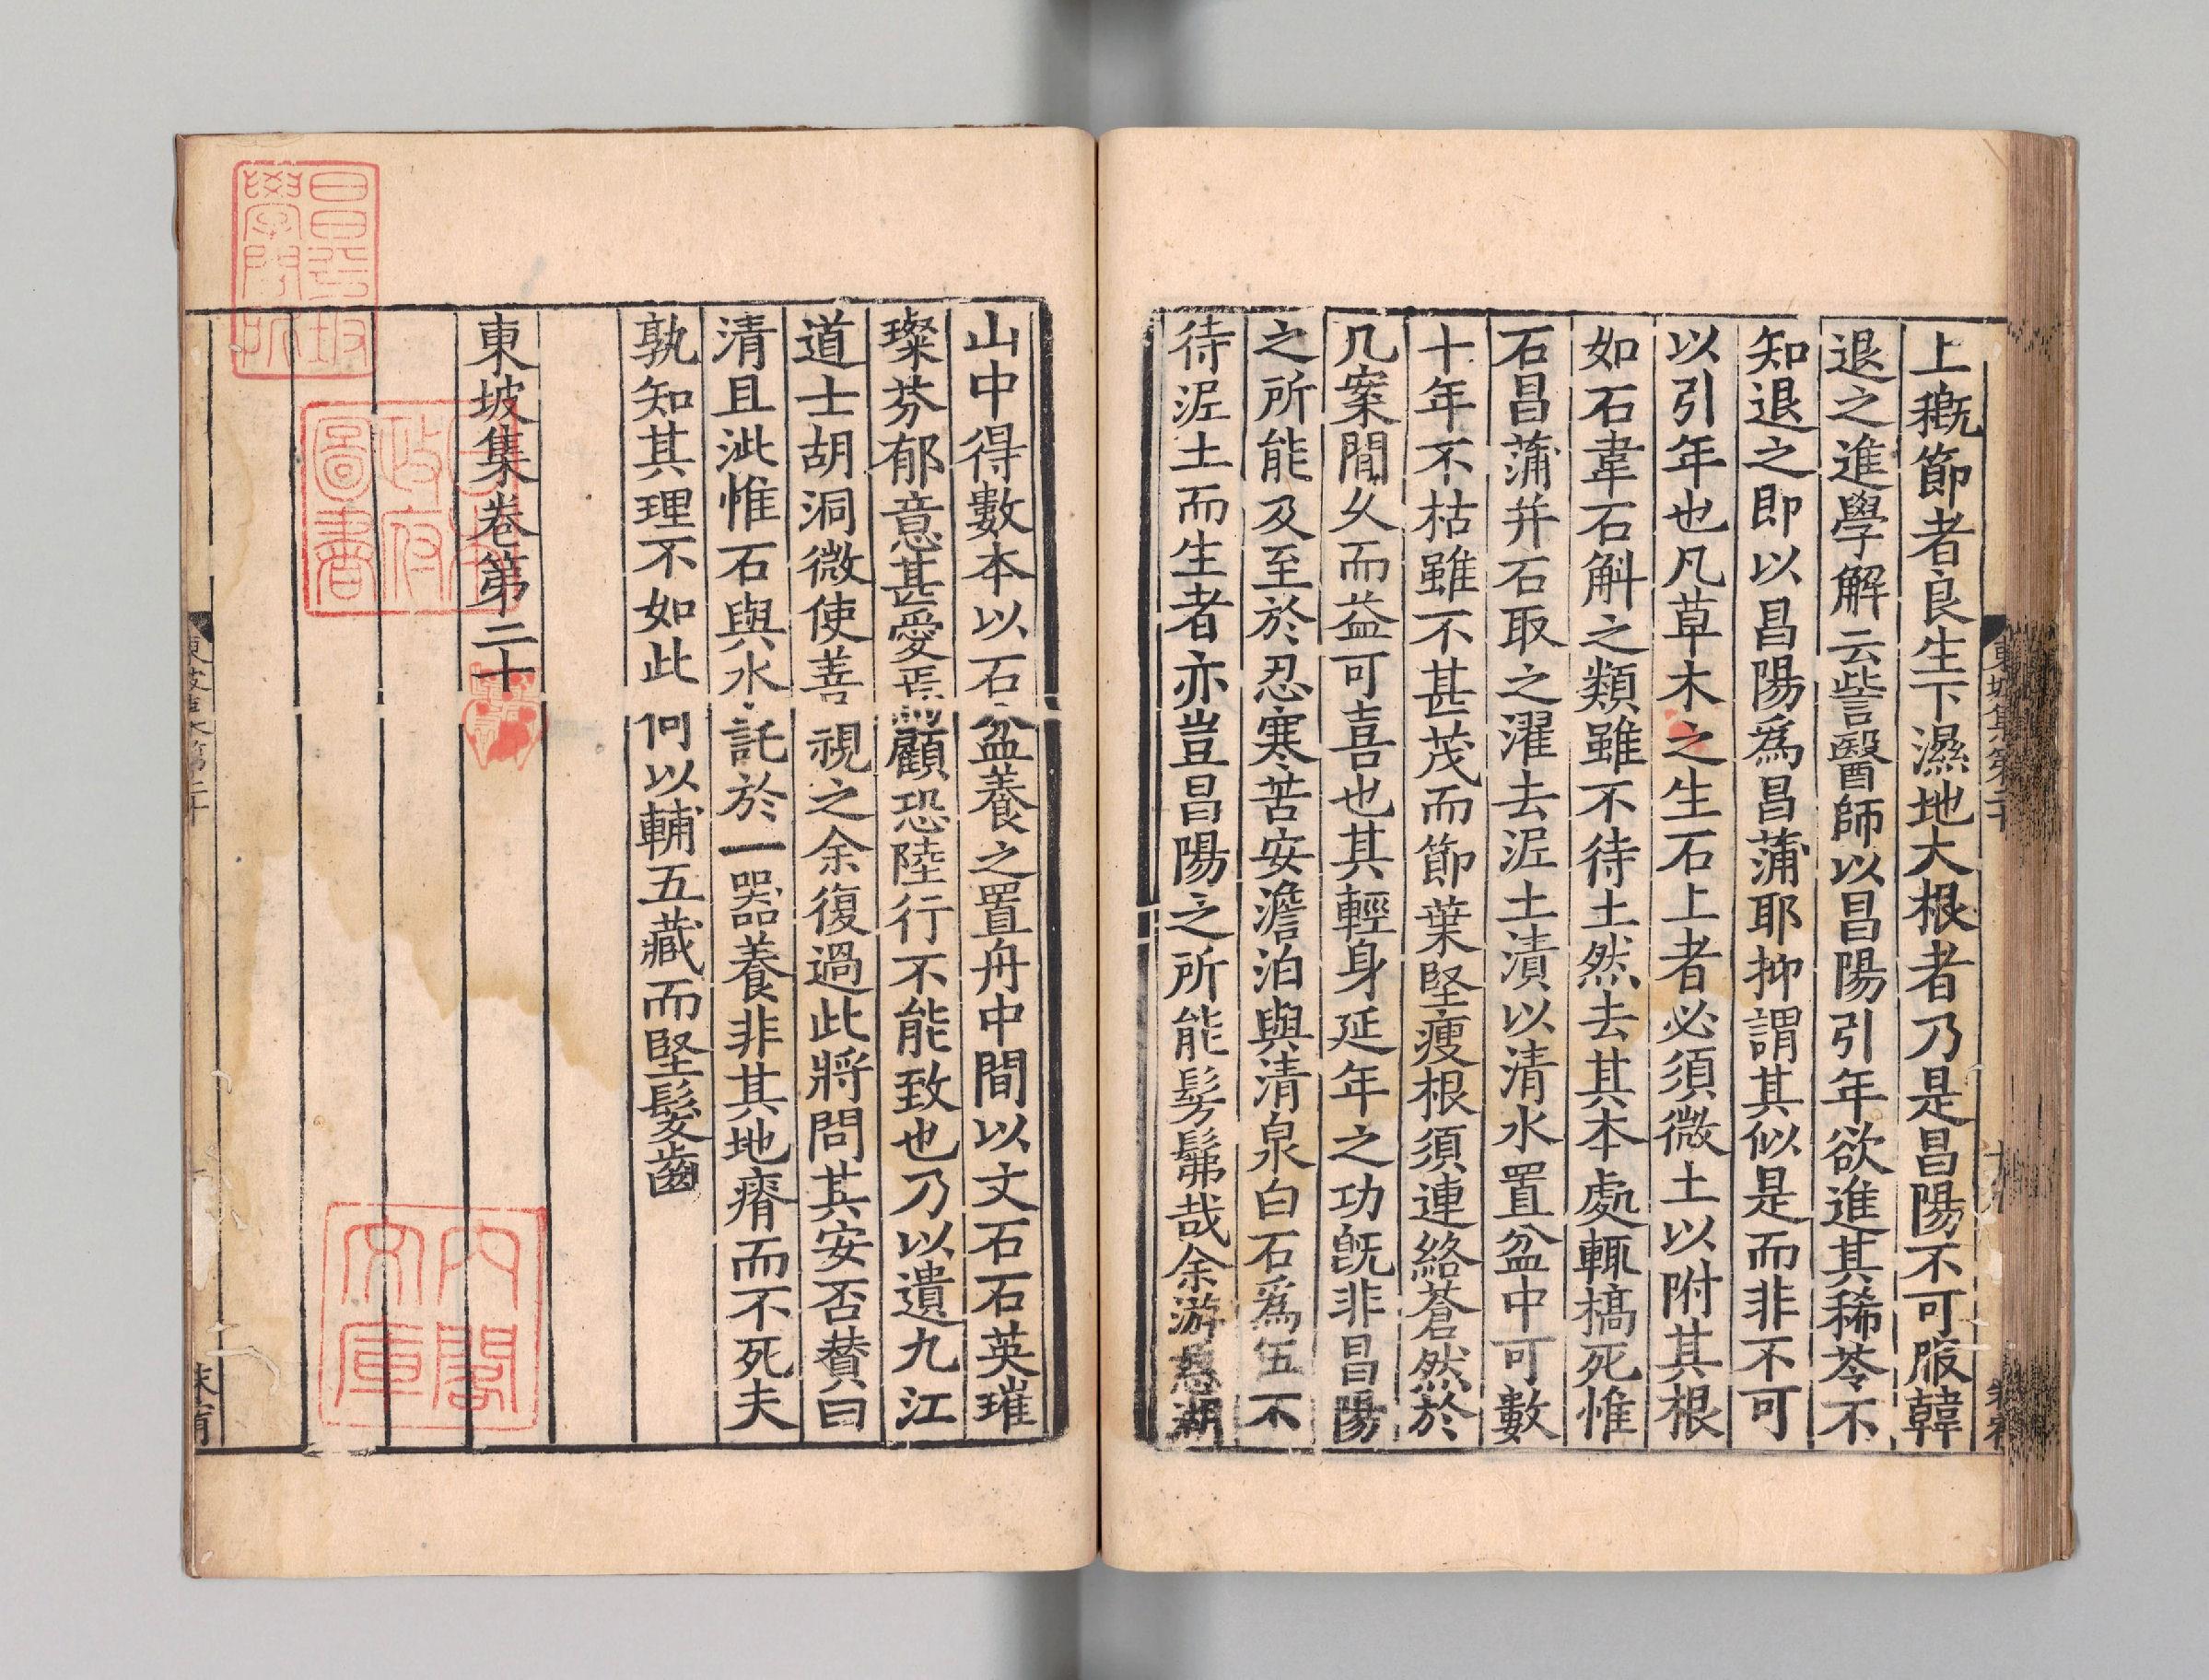 上穊節者良生下濕地大根者乃是昌陽不可服韓
退之進學解云訾醫師以昌陽引年欲進其豨苓不
知退之即以昌陽爲昌蒲耶抑謂其似是而非不可
以引年也凡草木之生石上者必須微土以附其根
如石韋石斛之類雖不待土然去其本處輒槁死惟
石昌蒲并石取之濯去泥土漬以清水置盆中可數
十年不枯雖不甚茂而節葉堅瘦根須連絡蒼然於
几案間乆而益可喜也其輕身延年之功旣非昌陽
之所能及至於忍寒苦安澹泊與清泉白石爲伍不
待泥土而生者亦豈昌陽之所能髣髴哉余游慈湖
山中得數本以石盆養之置舟中間以文石石英璀
璨芬郁意甚愛焉顧恐陸行不能致也乃以遺九江
道士胡洞微使善視之余復過此將問其安否賛曰
清且泚惟石與水託於一器養非其地瘠而不死夫
孰知其理不如此何以輔五藏而堅髮齒
東坡集卷第二十
東坡集第二十
昌平坂
學問所
政府
圖書
內閣
文庫